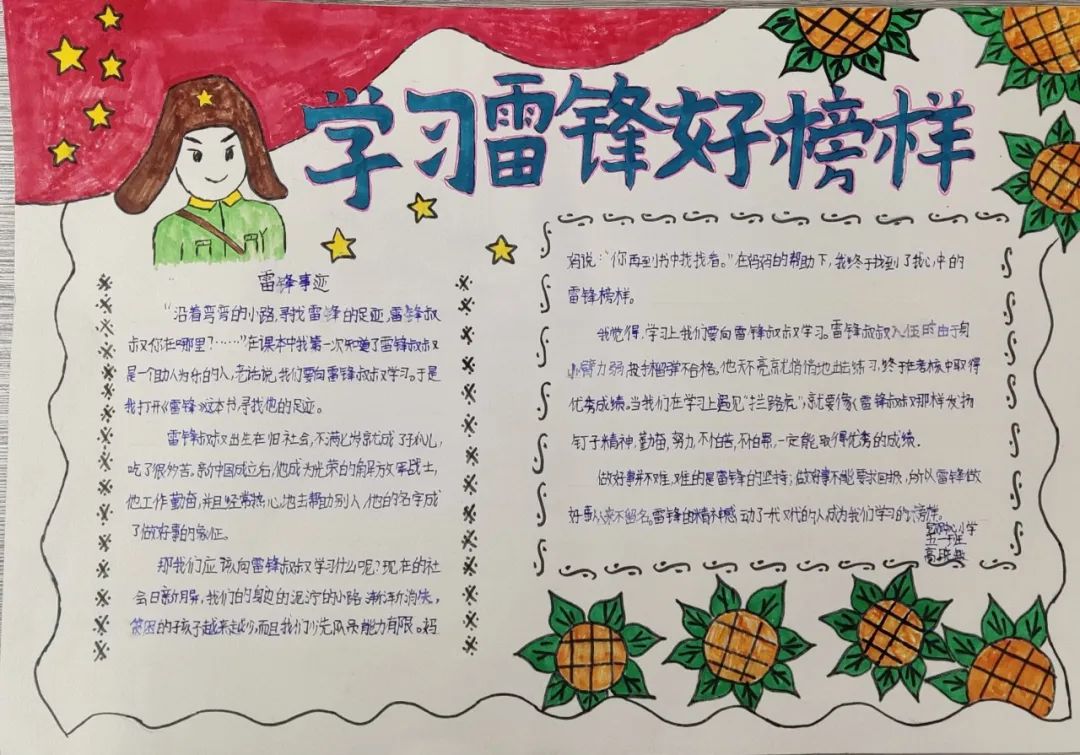 学习雷锋好榜样
雷锋事迹
“沿着弯弯的小路,寻找雷锋的足迹,雷锋叔
叔你在哪里?……”在课本中我第一次知道了雷锋叔叔
是一个助人为乐的人,老话说,我们要向雷锋叔叔学习。于是
我打开《雷锋》这本书,寻找他的足迹。
雷锋叔叔出生在旧社会,不满七岁就成了孤儿,
吃了很多苦。新中国成立后,他成为光荣的解放军战士,
他工作勤奋,并且经常热心地去帮助别人,他的名字成
了做好事的象征。
那我们应该向雷锋叔叔学习什么呢?现在的社
会日新月异,我们的身边的泥泞的小路渐渐消失,
贫困的孩子越来越少,而且我们少先队员能力有限。妈
妈说:“你再到书中找找看。”在妈妈的帮助下,我终于找到了我心中的
雷锋榜样。
我觉得,学习上我们要向雷锋叔叔学习。雷锋叔叔入伍时由于身
小臂力弱,投手榴弹不合格。他天不亮就悄悄地出去练习,终于在考核中取得
优秀成绩。当我们在学习上遇见“拦路虎”,就要像雷锋叔叔那样发扬
钉子精神,勤奋,努力,不怕苦,不怕累,一定能取得优秀的成绩.
做好事并不难,难的是雷锋的坚持;做好事不能要求回报,所以雷锋做
好事从来不留名,雷锋的精神感动了一代代的人成为我们学习的榜样。
小学
五一班